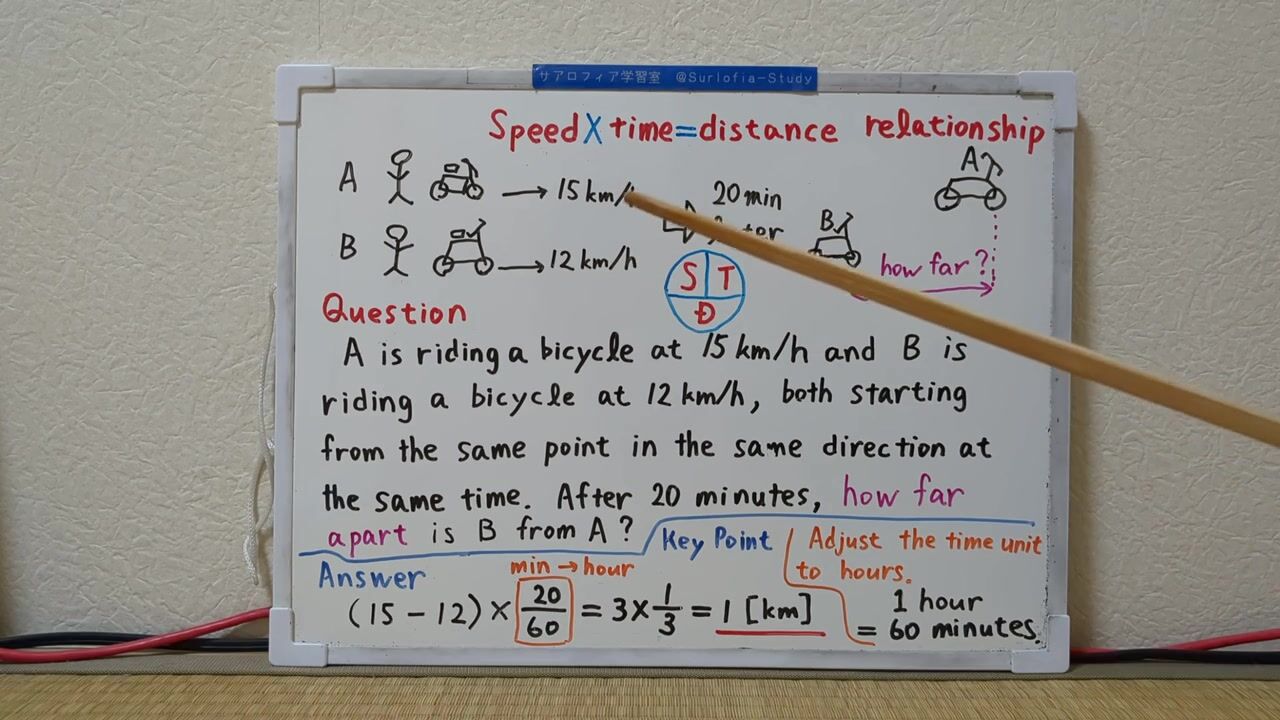 サアロフィア学習室 @Surlofia-Study
Speed X time = distance relationship
A → 15 km/
20 min
A
B → 12 km/h
B
how far?
S T
D
Question
A is riding a bicycle at 15 km/h and B is
riding a bicycle at 12 km/h, both starting
from the same point in the same direction at
the same time. After 20 minutes, how far
apart is B from A?
Key Point
Adjust the time unit
to hours.
1 hour
= 60 minutes.
Answer
min → hour
(15 − 12) × 20/60 = 3 × 1/3 = 1 [km]